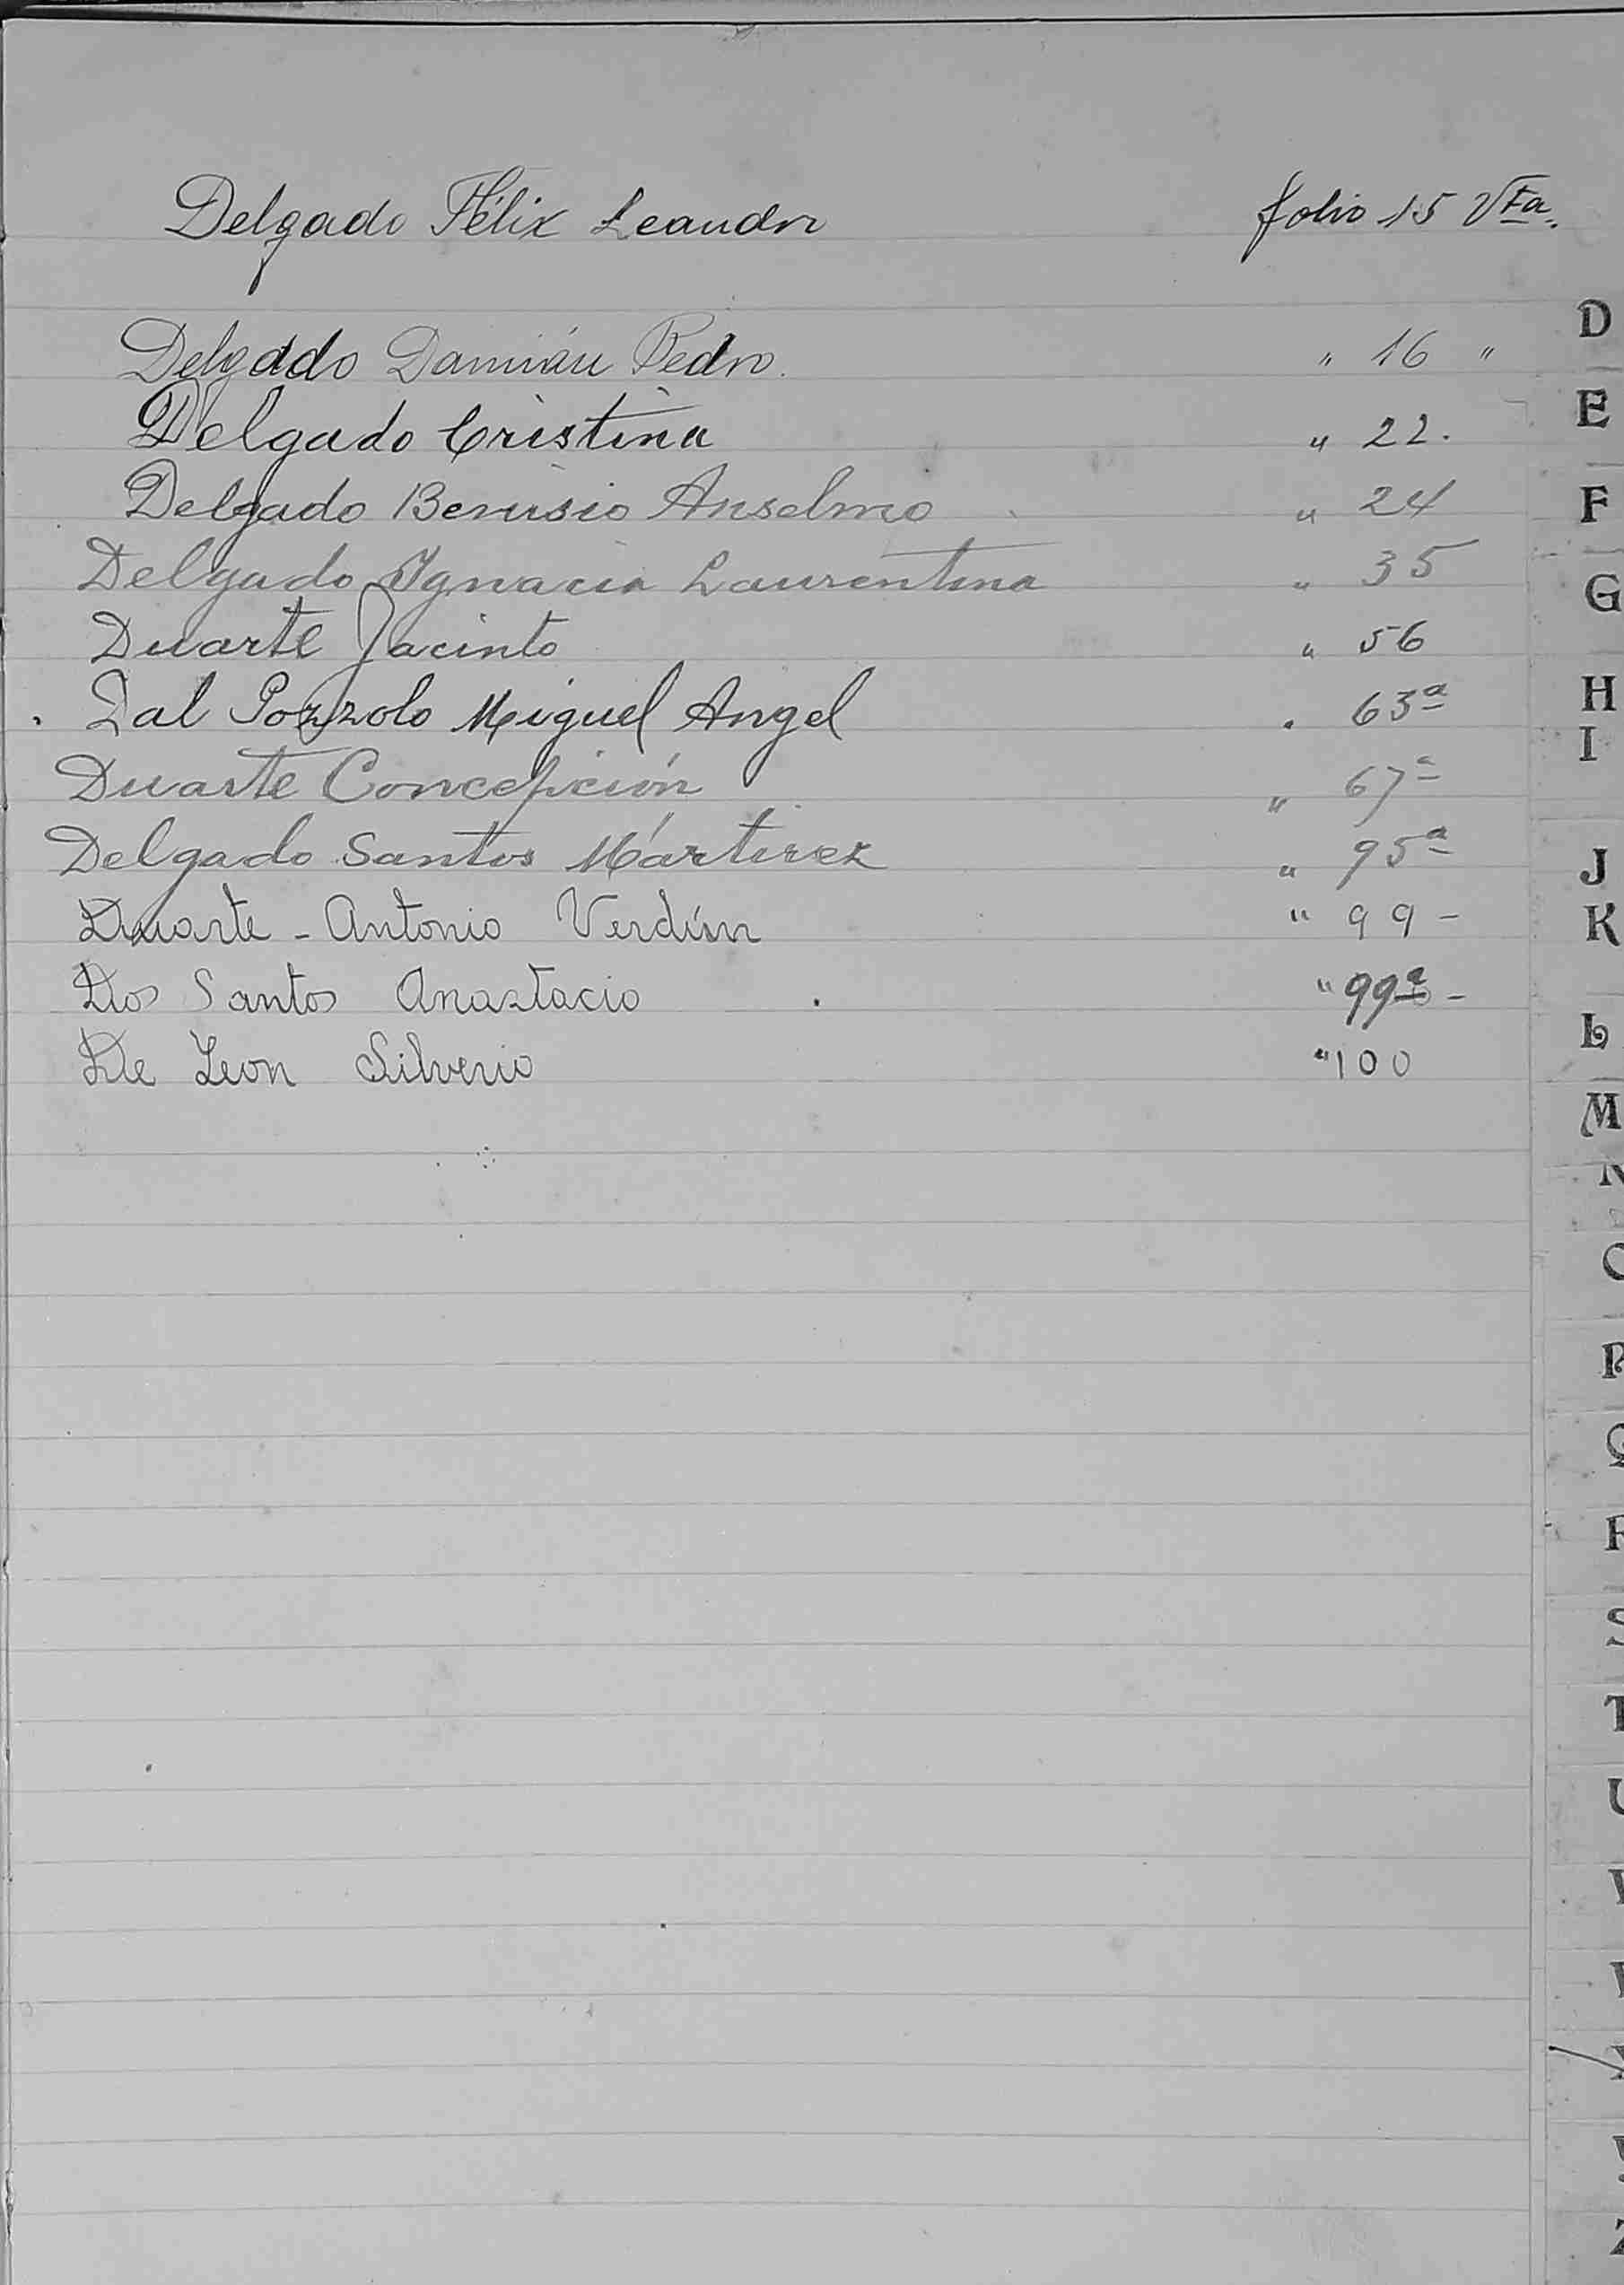 Delgado Félix Leandro folio 15 Vta.
Delgado Damián Pedro. " 16 "
Delgado Cristina " 22.
Delgado Benusio Anselmo " 24
Delgado Ygnacia Laurentina " 35
Duarte Jacinto " 56
Dal Pozzolo Miguel Angel " 63ª
Duarte Concepción " 67ª
Delgado Santos Mártirez " 95ª
Duarte - Antonio Verdún " 99 -
Dos Santos Anastacio " 99ª -
De Leon Silverio " 100
D
E
F
G
H
I
J
K
L
M
N
O
P
Q
R
S
T
U
V
X
Y
Z